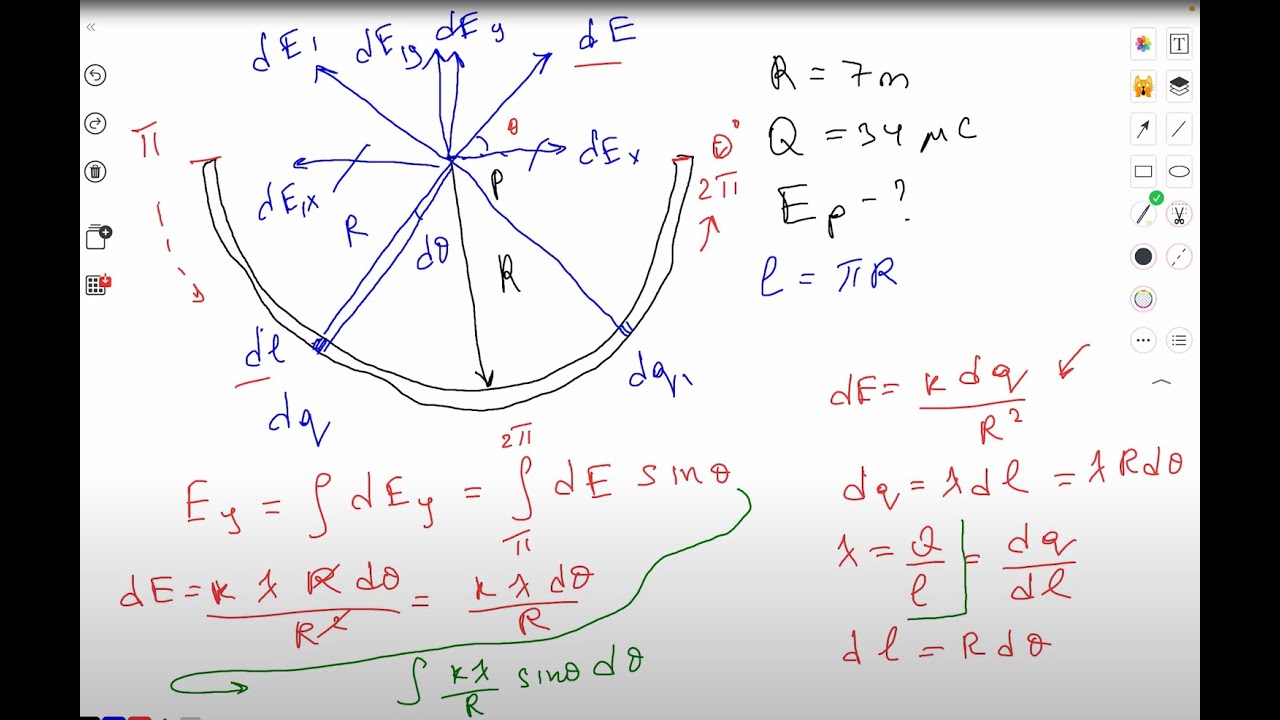 dE₁ dE₁y dEy dE
θ
dEₓ
P
dE₁ₓ
R
dθ
R
π
0°
2π
dl
dq
dq₁
R = 7m
Q = 34 μC
Eₚ - ?
l = πR
dE = k dq / R²
dq = λ dl = λ R dθ
λ = Q / l = dq / dl
dl = R dθ
Ey = ∫ dEy = ∫_π^2π dE sinθ
dE = k λ R dθ / R² = k λ dθ / R
∫ kλ / R sinθ dθ
T